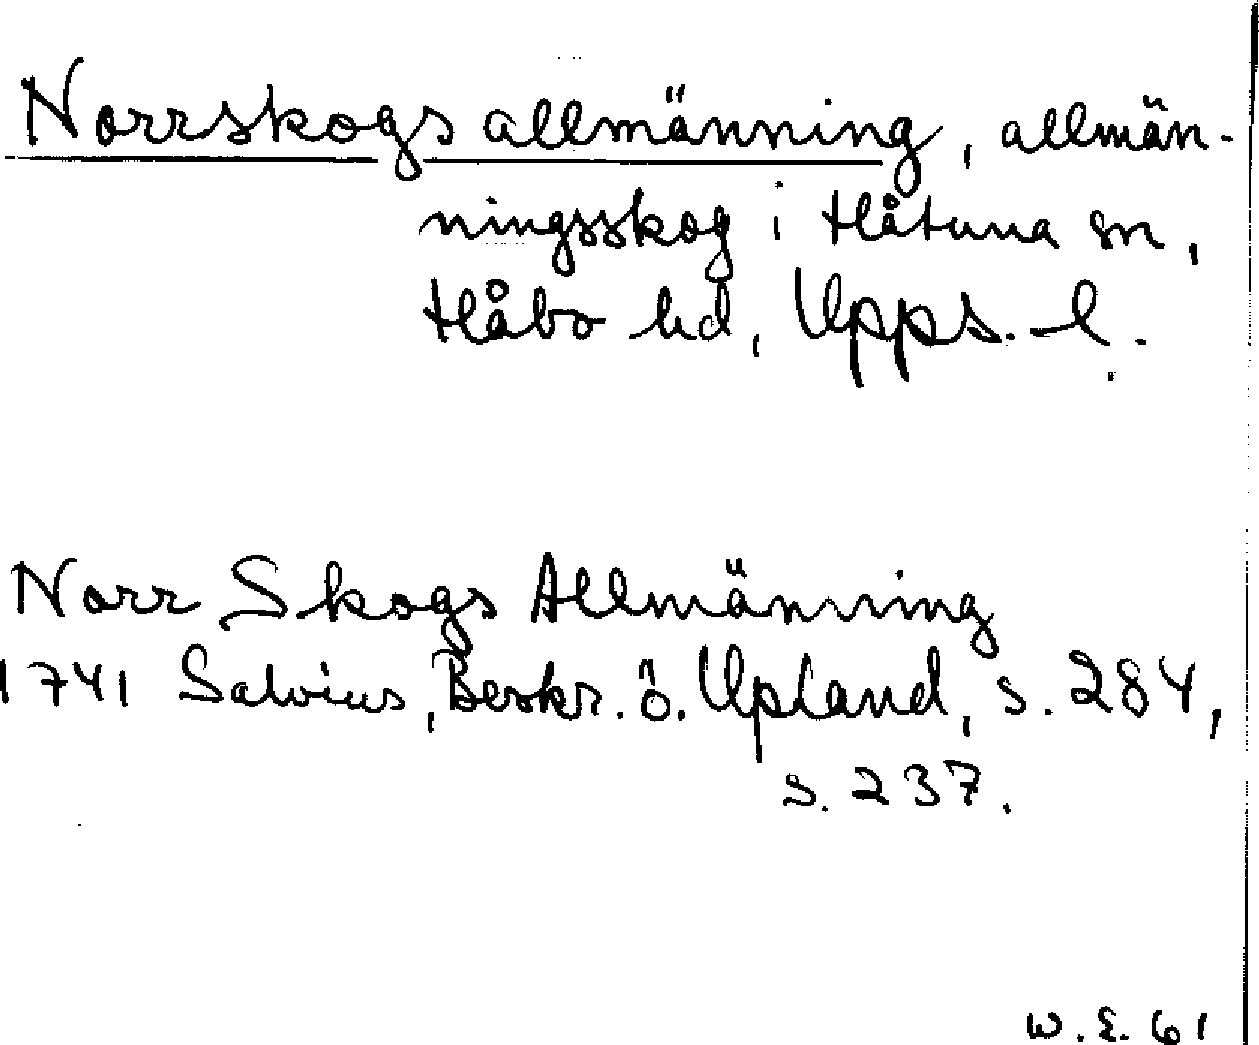 Norrskogs allmänning, allmän-
ningsskog i Håtuna sn,
Håbo hd, Upps. l.
Norr Skogs Allmänning
1741 Salvius, Beskr. ö. Upland, s. 284,
s. 237.
W. E. 61